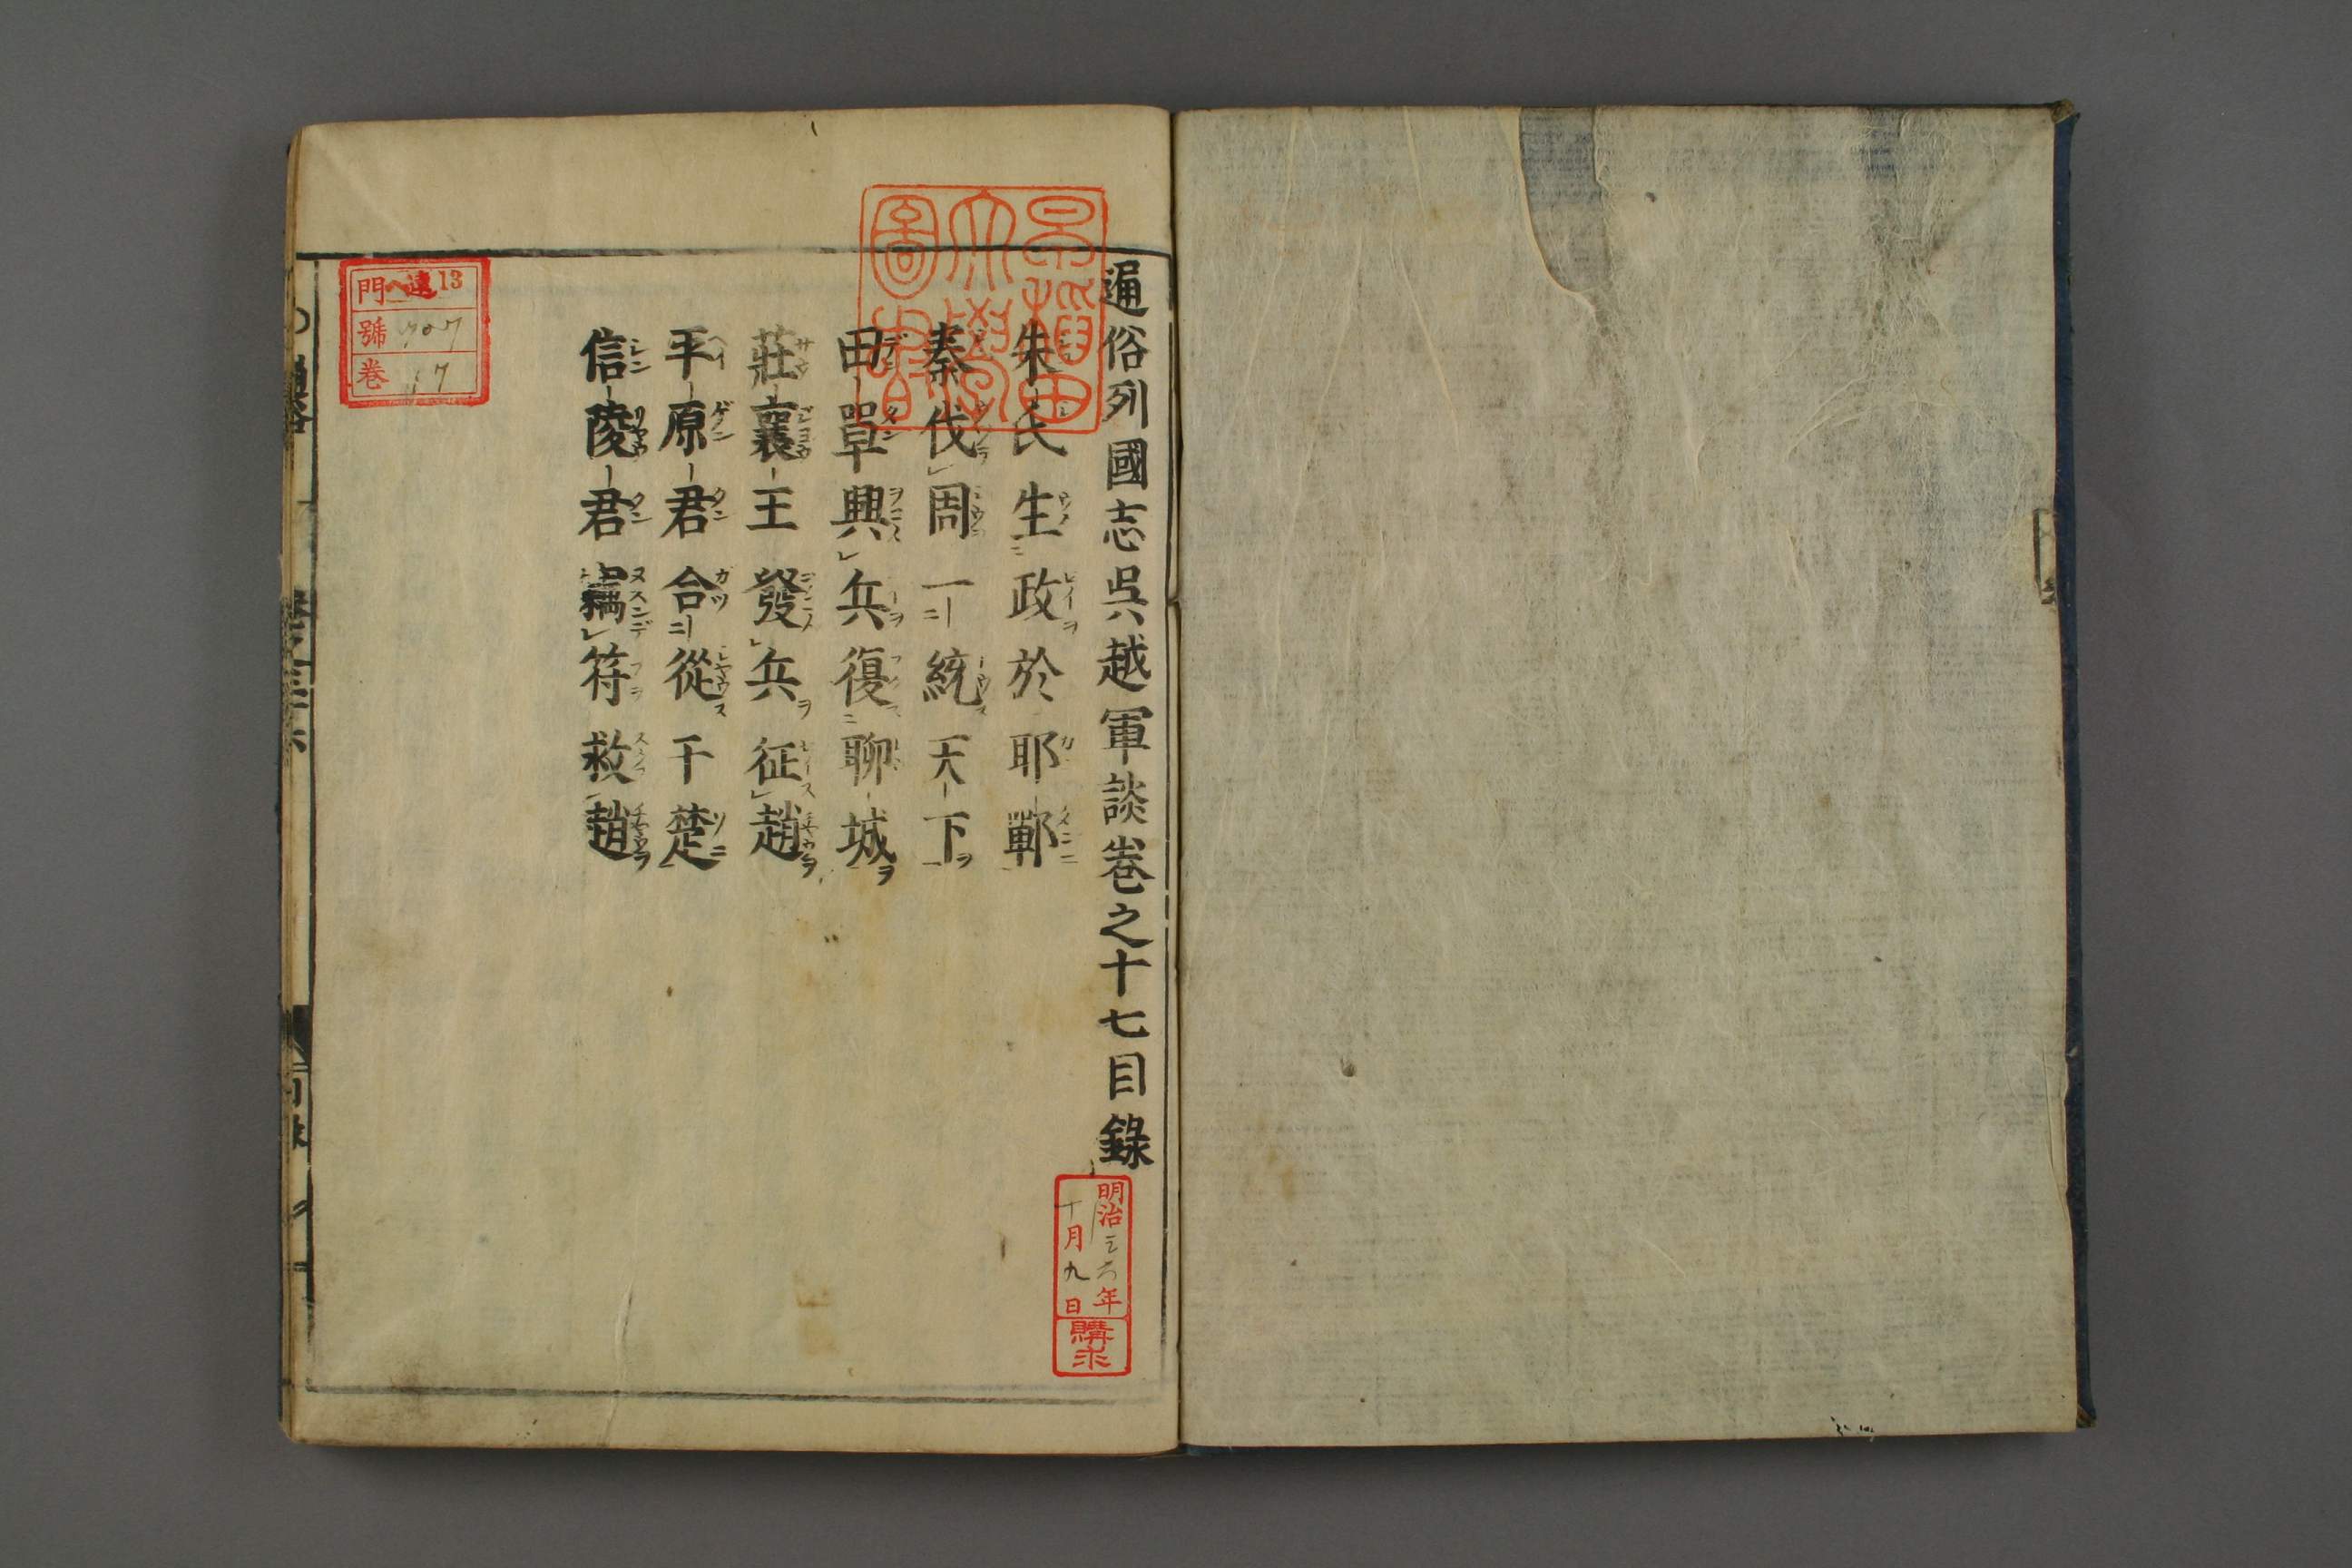 通俗列國志呉越軍談巻之十七目錄
朱氏生政於耶鄲
秦伐周一統天下
田單興兵復聊城
莊襄王發兵征趙
平原君合從于楚
信陵君竊符救趙
早稲田大學圖書
門 ヘ遠13
號 707
巻 17
明治三六年
十月九日
購求